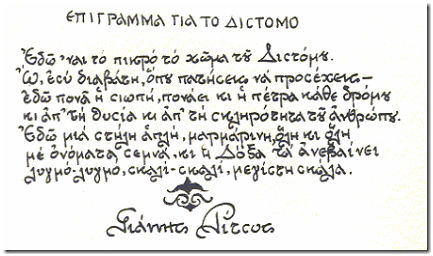 ΕΠΙΓΡΑΜΜΑ ΓΙΑ ΤΟ ΔΙΣΤΟΜΟ
Ἐδῶ 'ναι τὸ πικρὸ τὸ χῶμα τοῦ Διστόμου.
Ὤ, ἐσὺ διαβάτη, ὅπου πατήσεις νὰ προσέχεις—
ἐδῶ πονᾶ ἡ σιωπή, πονάει κι ἡ πέτρα κάθε δρόμου
κι ἀπ' τὴ θυσία κι ἀπ' τὴ σκληρότητα τοῦ ἀνθρώπου.
Ἐδῶ μιὰ στήλη ἁπλή, μαρμάρινη, ὅλη κι ὅλη
μὲ ὀνόματα σεμνά, κι ἡ Δόξα τὰ ἀνεβαίνει
λυγμό-λυγμό, σκαλί-σκαλί, μεγίστη σκάλα.
Γιάννης Ρίτσος